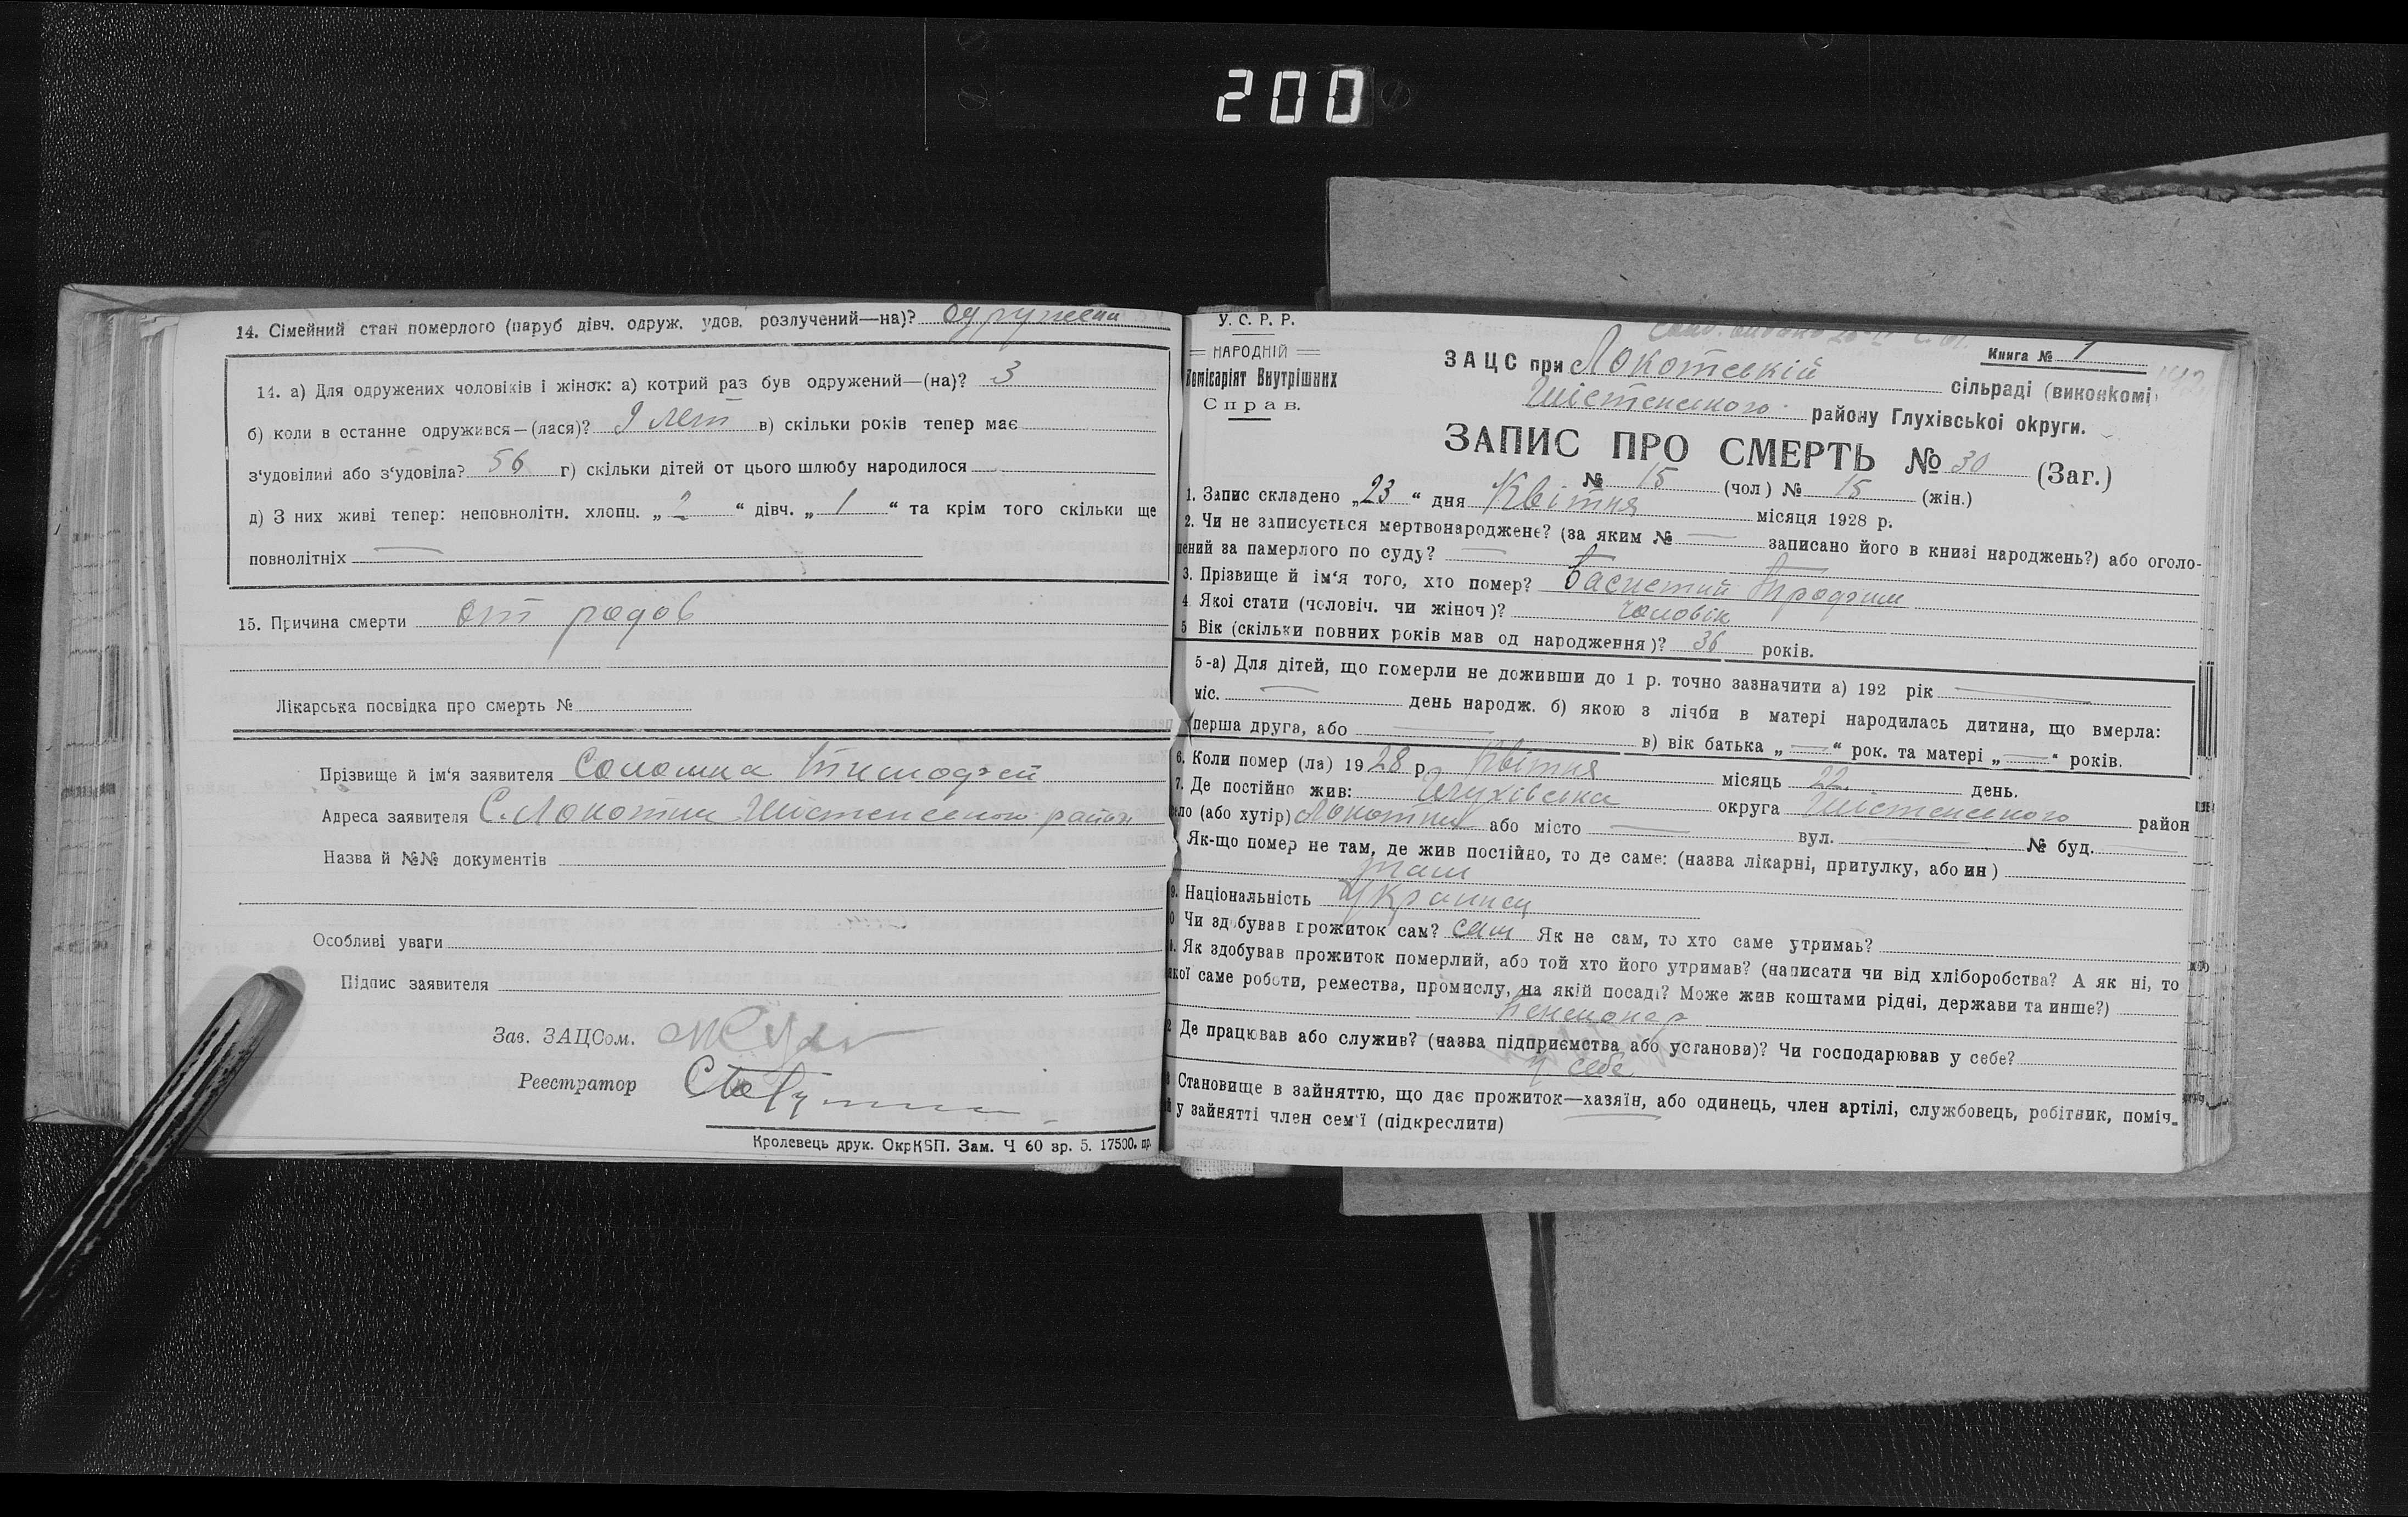 200
14. Сімейний стан померлого (паруб дівч. одруж. удов. розлучений—на)? одружени
14. а) Для одружених чоловіків і жінок: а) котрий раз був одружений—(на)? 3
б) коли в останне одружився—(лася)? 9 лет в) скільки років тепер має
з'удовілий або з'удовіла? 56 г) скільки дітей от цього шлюбу народилося
д) З них живі тепер: неповнолітн. хлопц. „ 2 “ дівч. „ 1 “ та крім того скільки ще
повнолітніх —
15. Причина смерти от родов
Лікарська посвідка про смерть №
Прізвище й ім'я заявителя Соломка Тимофей
Адреса заявителя С. Локотки Шістенського район
Назва й №№ документів
Особливі уваги
Підпис заявителя
Зав. ЗАЦСом.
Реестратор
Кролевець друк. ОкрКБП. Зам. Ч 60 зр. 5. 17500. пр.
У. С. Р. Р.
НАРОДНІЙ
Комісаріят Внутрішних
Справ.
Книга № 1
ЗАЦС при Локотській сільраді (виконкомі)
Шістенського району Глухівської округи.
ЗАПИС ПРО СМЕРТЬ № 30 (Заг.)
№ 15 (чол) № 15 (жін.)
1. Запис складено „23“ дня Квітня місяця 1928 р.
2. Чи не записується мертвонароджене? (за яким № — записано його в книзі народжень?) або оголо-
шений за памерлого по суду? —
3. Прізвище й ім'я того, хто помер? Басистий Трофим
4. Якої стати (чоловіч. чи жіноч)? Чоловік
5 Вік (скільки повних років мав од народження)? 36 років.
5-а) Для дітей, що померли не доживши до 1 р. точно зазначити а) 192 рік —
міс. — день народж. б) якою з лічби в матері народилась дитина, що вмерла:
перша друга, або — в) вік батька „—“ рок. та матері „—“ років.
6. Коли помер (ла) 1928 р Квітня місяць 22. день.
7. Де постійно жив: Глухівська округа Шістенського район
село (або хутір) Локотки або місто — вул. — № буд. —
Як-що помер не там, де жив постійно, то де саме: (назва лікарні, притулку, або ин)
там
9. Національність Украинец
0 Чи здобував прожиток сам? сам Як не сам, то хто саме утримав?
. Як здобував прожиток померлий, або той хто його утримав? (написати чи від хліборобства? А як ні, то
якої саме роботи, ремества, промислу, на якій посаді? Може жив коштами рідні, держави та инше?)
Пенсионер
2 Де працював або служив? (назва підприємства або установи)? Чи господарював у себе?
у себе
3 Становище в зайняттю, що дає прожиток—хазяїн, або одинець, член артілі, службовець, робітник, поміч-
й у зайнятті член сем'ї (підкреслити)